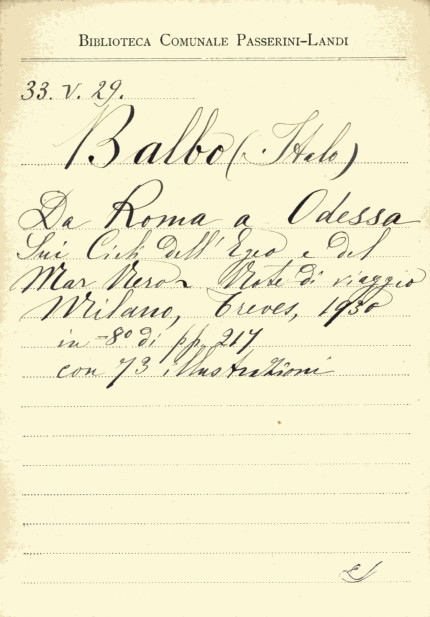 BIBLIOTECA COMUNALE PASSERINI-LANDI
33. V. 29.
Balbo (Italo)
Da Roma a Odessa
Sui Cieli dell'Egeo e del
Mar Nero - Note di viaggio
Milano, Treves, 1930
in-8° di pp. 217
con 73 illustrazioni